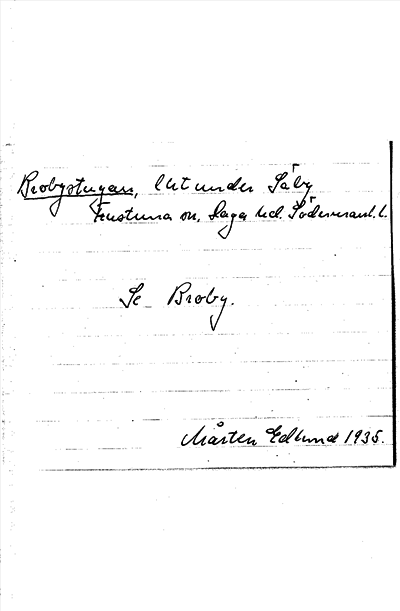 Brobystugan, lht under Säby
Frustuna sn, Daga hd. Södermanl. l.
Se Broby.
Mårten Edlund 1935.